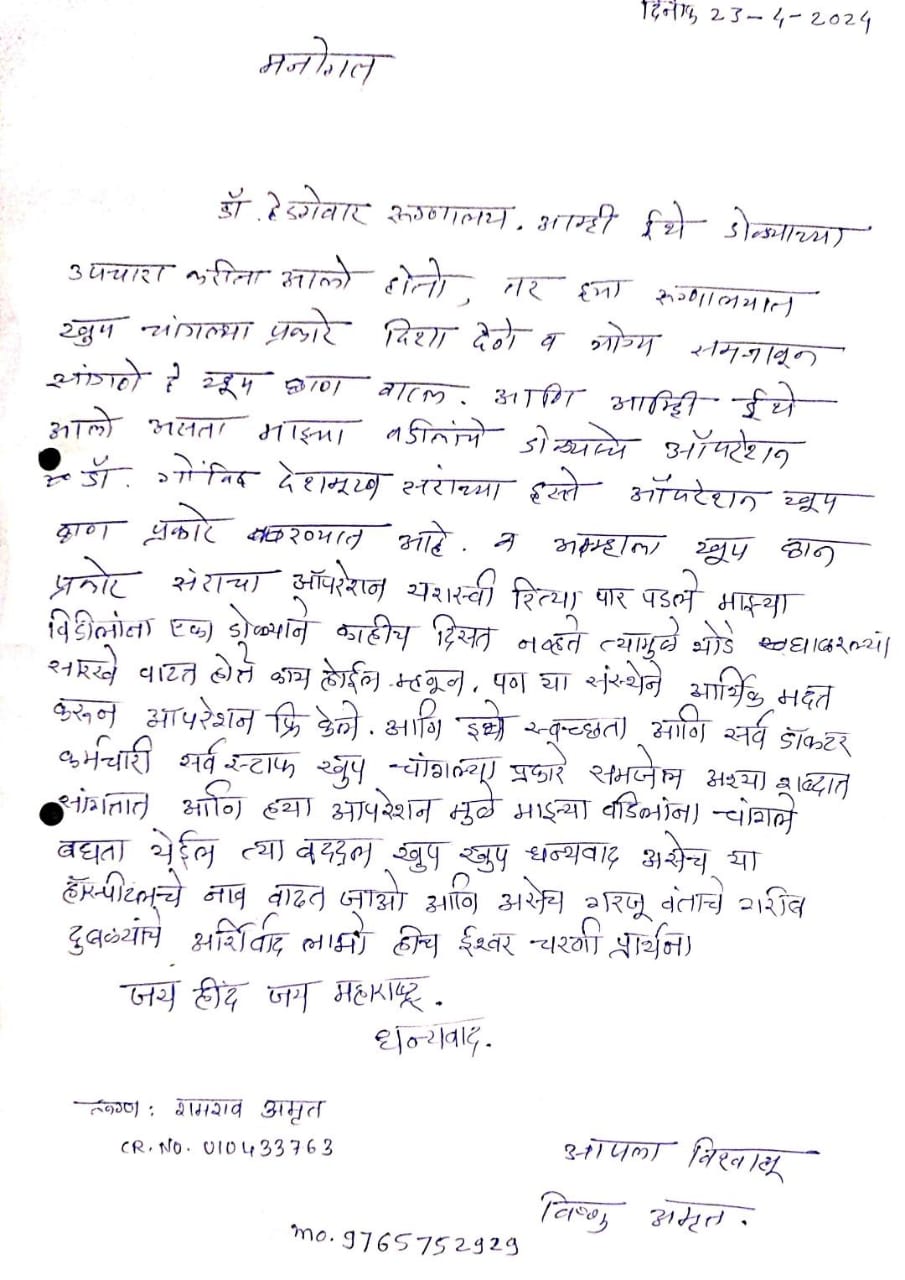 दिनांक 23-4-2024
मनोगत
डॉ. हेडगेवार रूग्णालय. आम्ही ईथे डोळ्याच्या
उपचारा करीता आलो होतो, तर ह्या रूग्णालयात
खुप चांगल्या प्रकारे दिशा देणे व योग्य समजावून
सांगणे हे खूप छाण वाटल. आणि आम्हि ईथे
आलो असता माझ्या वडीलांचे डोळ्याचे ऑपरेशन
डॉ. गोविंद देशमूख सरांच्या हस्ते ऑपरेशन खूप
छाण प्रकारे करण्यात आहे. व अम्हाला खूप छान
प्रकारे संराचा ऑपरेशन यशस्वी रित्या पार पडले माझ्या
विडीलांना एका डोळ्याने काहीच दिसत नव्हते त्यामुळे थोडे घाबरल्या
सारखे वाटत होते काय होईल म्हणून. पण या संस्थेने आर्थिक मदत
करून ऑपरेशन फ्रि केले. आणि इथे स्वच्छता आणि सर्व डॉक्टर
कर्मचारी सर्व स्टाफ खुप चांगल्या प्रकारे समजेल अश्या शब्दात
सांगतात आणि हया आपरेशन मुळे माझ्या वडिलांना चांगले
बघता येईल त्या बद्दल खुप खुप धन्यवाद असेच या
हॉस्पीटलचे नाव वाढत जाओ आणि असेच गरजू वंताचे गरीब
दुबळ्यांचे अर्शिवाद लाभो हीच ईश्वर चरणी प्रार्थना
जय हींद जय महाराष्ट्र.
धन्यवाद.
रूग्ण: रामराव अमृत
CR.NO. 010433763
आपला विश्वासू
विष्णु अमृत.
mo. 9765752929